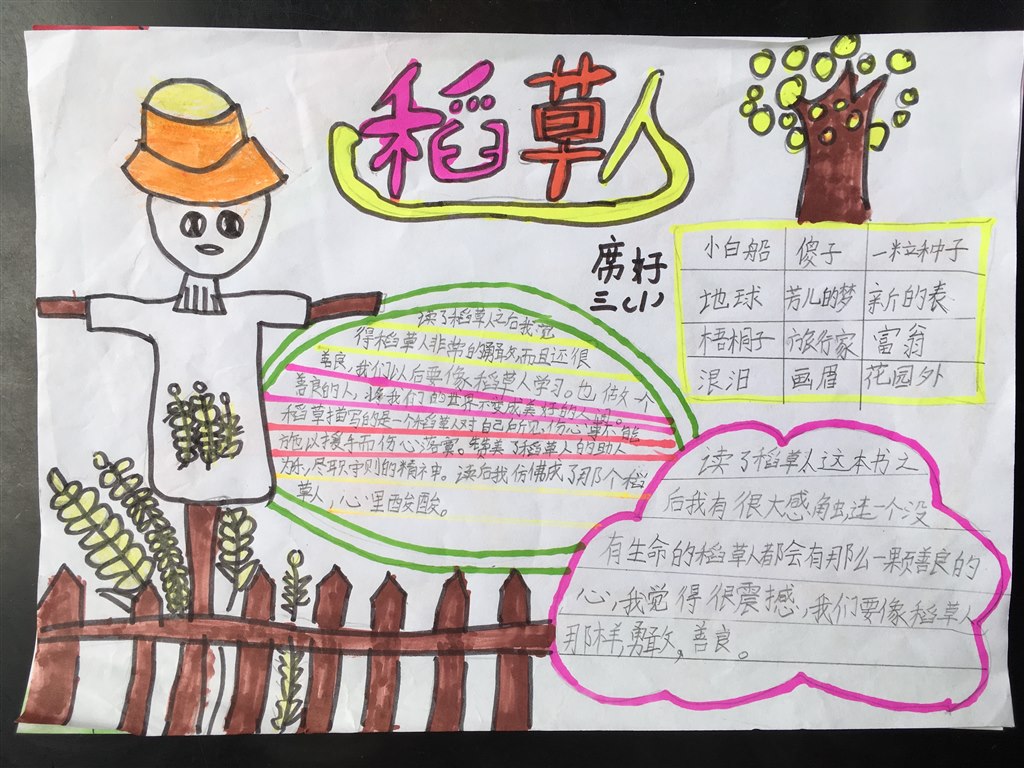 稻草人
席籽
三(1)
小白船 傻子 一粒种子
地球 芳儿的梦 新的表
梧桐子 旅行家 富翁
眼泪 画眉 花园外
读了稻草人之后我觉
得稻草人非常的勇敢而且还很
善良,我们以后要像稻草人学习。也做一个
善良的人,将我们的世界不变成美好的人间。
稻草描写的是一个稻草人对自己所见伤心事不能
施以援手而伤心落寞。赞美了稻草人的助人
为乐,尽职守则的精神。读后我仿佛成了那个稻
草人,心里酸酸。
读了稻草人这本书之
后我有很大感触,连一个没
有生命的稻草人都会有那么一颗善良的
心,我觉得很震撼,我们要像稻草人
那样,勇敢,善良。